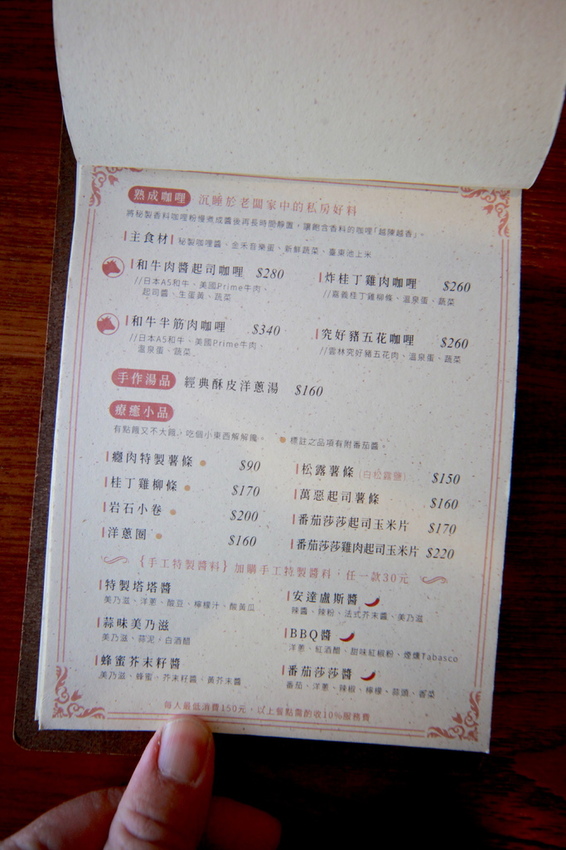 熟成咖哩 沉睡於老闆家中的私房好料
將秘製香料咖哩粉慢煮成醬後再長時間靜置，讓飽含香料的咖哩「越陳越香」。
主食材 秘製咖哩醬、金禾音樂蛋、新鮮蔬菜、臺東池上米
和牛肉醬起司咖哩 $280
//日本A5和牛、美國Prime牛肉、
起司醬、生蛋黃、蔬菜
炸桂丁雞肉咖哩 $260
//嘉義桂丁雞柳條、溫泉蛋、蔬菜
和牛半筋肉咖哩 $340
//日本A5和牛、美國Prime牛肉、
溫泉蛋、蔬菜
究好豬五花咖哩 $260
//雲林究好豬五花肉、溫泉蛋、蔬菜
手作湯品 經典酥皮洋蔥湯 $160
療癒小品
有點餓又不太餓，吃個小東西解解饞。 標註之品項有附番茄醬。
癮肉特製薯條 $90
桂丁雞柳條 $170
岩石小卷 $200
洋蔥圈 $160
松露薯條(白松露鹽) $150
萬惡起司薯條 $160
番茄莎莎起司玉米片 $170
番茄莎莎雞肉起司玉米片 $220
{手工特製醬料} 加購手工特製醬料，任一款30元
特製塔塔醬
美乃滋、洋蔥、酸豆、檸檬汁、酸黃瓜
蒜味美乃滋
美乃滋、蒜泥、白酒醋
蜂蜜芥末籽醬
美乃滋、蜂蜜、芥末籽醬、黃芥末醬
安達盧斯醬
辣醬、辣粉、法式芥末醬、美乃滋
BBQ醬
洋蔥、紅酒醋、甜味紅椒粉、煙燻Tabasco
番茄莎莎醬
番茄、洋蔥、辣椒、檸檬、蒜頭、香菜
每人最低消費150元，以上餐點需酌收10%服務費